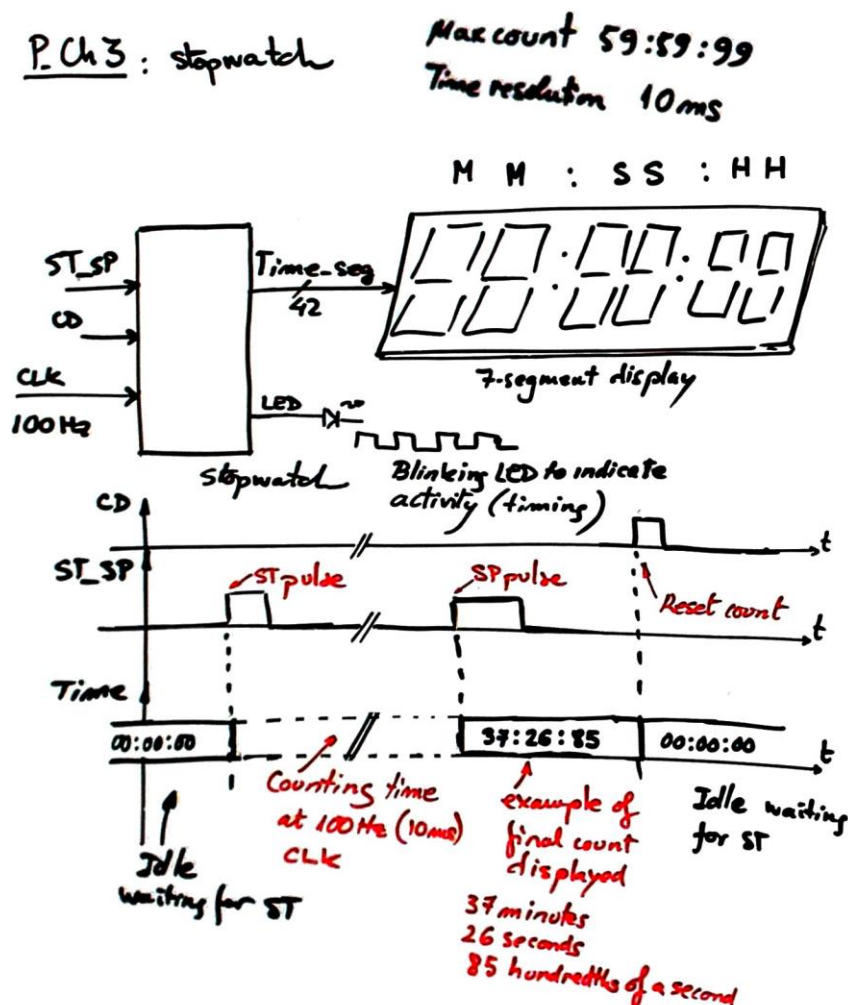 P.Ch3 : stopwatch
Max count 59:59:99
Time resolution 10ms
M M : S S : H H
ST_SP
Time_seg
42
CD
CLK
100Hz
7-segment display
LED
stopwatch
Blinking LED to indicate
activity (timing)
CD
t
ST_SP
ST pulse
SP pulse
Reset count
t
Time
00:00:00
37:26:85
00:00:00
t
Idle
waiting for ST
Counting time
at 100Hz (10ms)
CLK
example of
final count
displayed
37 minutes
26 seconds
85 hundredths of a second
Idle waiting
for ST